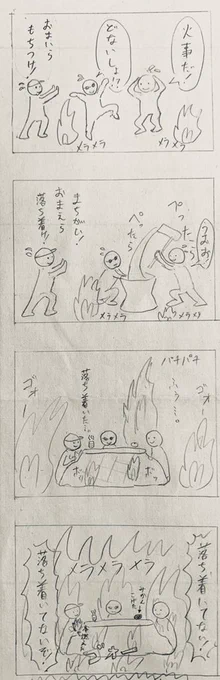 火事だ!
どないしょ!?
おまいら
もちつけ!
メラメラ
メラメラ
ぺったら
ぺったら
まちがい!
おまえら
落ち着け!
メラメラ
メラメラ
パチパチ
ふぅ…。
落ち着いた…。
ゴオー
ゴオー
ホッ
ホッ
メラメラメラ
落ち着いてない!
落ち着いてないぞ!